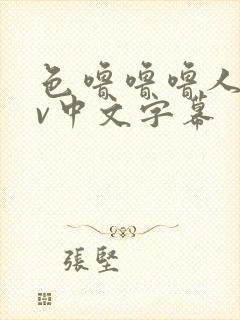 色噜噜噜人
v中文字幕
張堅